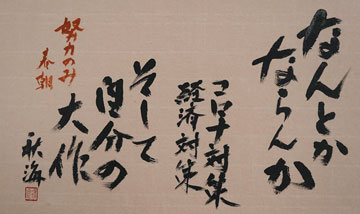 なんとか
ならんか
コロナ対策
経済対策
そして
自分の
大作
努力のみ
春潮
秋海